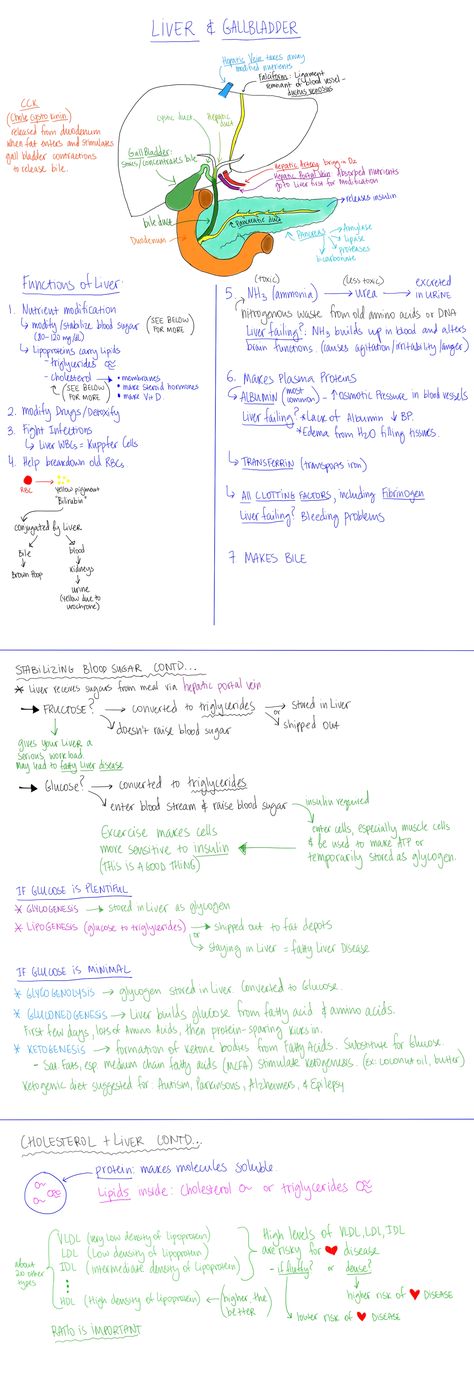 LIVER & GALLBLADDER
Hepatic Vein takes away
modified nutrients
Falciform: Ligament
remnant of blood vessel -
ductus venosus
CCK
(Cholecystokinin)
released from duodenum
when fat enters and stimulates
gall bladder contractions
to release bile.
cystic duct
hepatic
duct
GallBladder:
stores/concentrates bile
Hepatic Artery brings in O2
Hepatic Portal Vein absorbed nutrients
go to Liver first for modification
releases insulin
bile duct
Pancreatic duct
Duodenum
Pancreas
Amylase
Lipase
proteases
bicarbonate
Functions of Liver:
1. Nutrient modification
modify/stabilize blood sugar
(80-120 mg/dL)
(SEE BELOW
FOR MORE)
Lipoproteins carry Lipids
- triglycerides
- cholesterol
• membranes
• make steroid hormones
• make Vit D.
(SEE BELOW
FOR MORE)
2. Modify Drugs/Detoxify
3. Fight Infections
Liver WBCs = Kupffer Cells
4. Help breakdown old RBCs.
RBC
yellow pigment
"Bilirubin"
conjugated by LIVER
Bile
Brown Poop
blood
kidneys
urine
(yellow due to
urochrome)
(toxic) (less toxic)
5. NH3 (ammonia) → urea → excreted
in URINE
nitrogenous waste from old amino acids or DNA
Liver failing? NH3 builds up in blood and alters
brain functions. (causes agitation/irritability/anger)
6. Makes Plasma Proteins
ALBUMIN (most common) - ↑ Osmotic Pressure in blood vessels
Liver failing? * Lack of Albumin ↓ BP.
* Edema from H2O filling tissues.
TRANSFERRIN (transports iron)
All CLOTTING FACTORS, including Fibrinogen
Liver failing? Bleeding Problems
7 MAKES BILE
STABILIZING BLOOD SUGAR CONTD...
* Liver receives sugars from meal via hepatic portal vein
→ FRUCTOSE? → converted to triglycerides → stored in Liver
or
shipped out
doesn't raise blood sugar
gives your LIVER a
serious workload.
May lead to fatty liver disease
→ Glucose? → converted to triglycerides
enter blood stream & raise blood sugar
insulin required
enter cells, especially muscle cells
& be used to make ATP or
temporarily stored as glycogen.
Excercise makes cells
more sensitive to insulin
(THIS IS A GOOD THING)
IF GLUCOSE IS PLENTIFUL
* GLYCOGENESIS → stored in Liver as glycogen
* LIPOGENESIS (glucose to triglycerides) → shipped out to fat depots
or
staying in Liver = fatty Liver Disease
IF GLUCOSE IS MINIMAL
* GLYCOGENOLYSIS → glycogen stored in Liver. Converted to Glucose.
* GLUCONEOGENESIS → Liver builds glucose from fatty acid & amino acids.
First few days, lots of Amino Acids, then protein-sparing kicks in.
* KETOGENESIS → formation of Ketone bodies from Fatty Acids. Substitute for Glucose.
- Sat Fats, esp medium chain fatty acids (MCFA) stimulate ketogenesis. (Ex: coconut oil, butter)
Ketogenic diet suggested for: Autism, Parkinsons, Alzheimers, & Epilepsy
CHOLESTEROL + LIVER CONTD...
protein: makes molecules soluble.
Lipids inside: Cholesterol or triglycerides
about
20 other
types
VLDL (Very low density of lipoprotein)
LDL (Low density of lipoprotein)
IDL (intermediate density of Lipoprotein)
HDL (High density of lipoprotein) ← (higher the
better
High levels of VLDL, LDL, IDL
are risky for ♥ disease
- if fluffy? or dense?
higher risk of ♥ DISEASE
lower risk of ♥ DISEASE
RATIO IS IMPORTANT